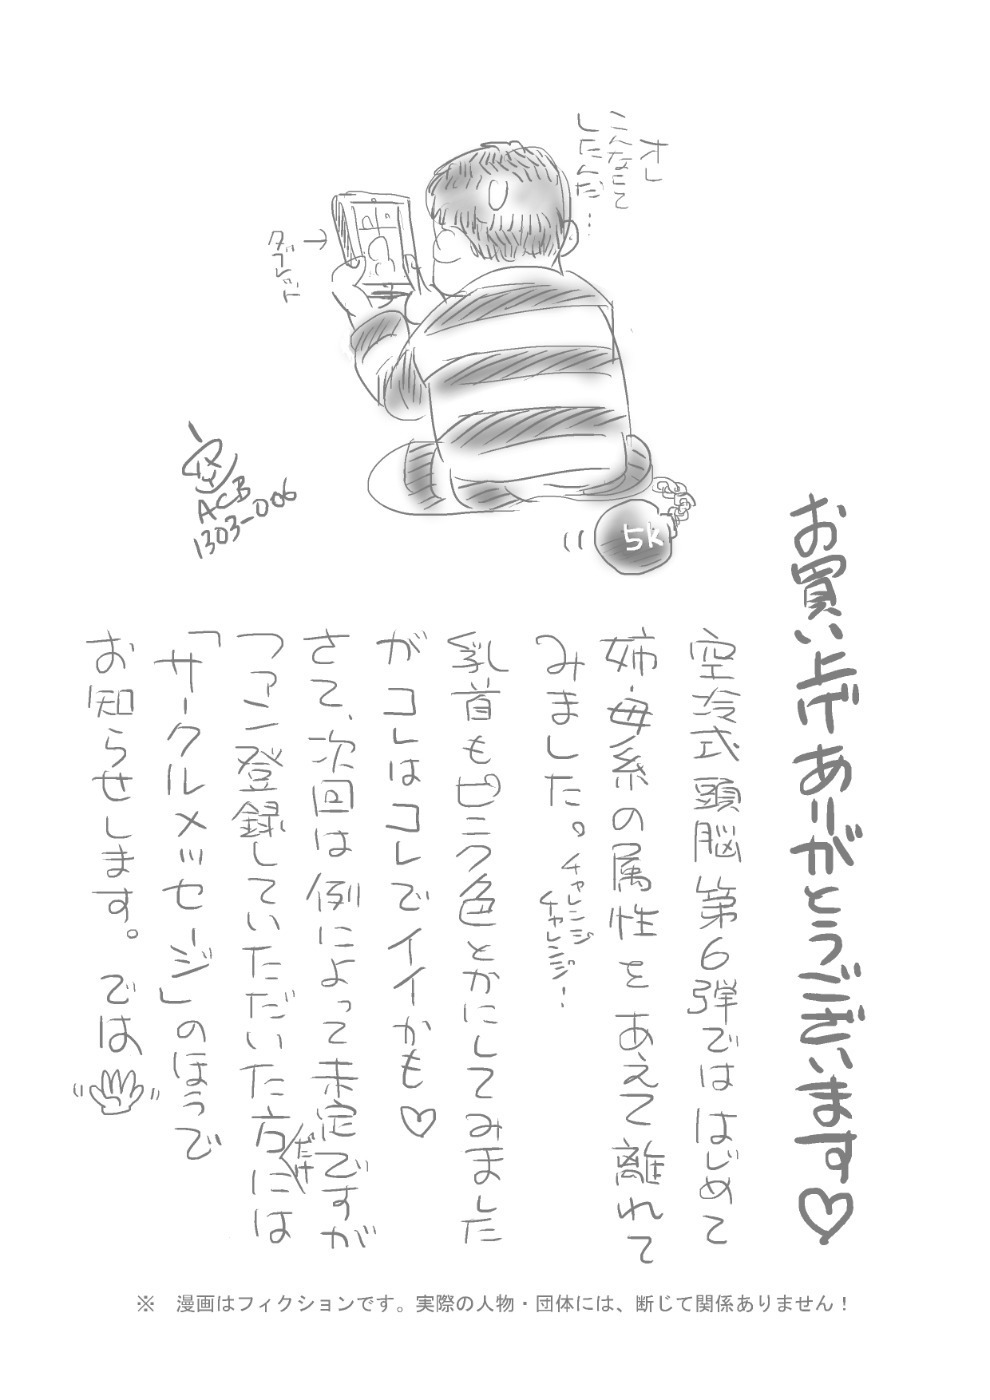 オレ
こんなにして
したんだ…
タブレット
→
空
ACB
1303-006
5k
お買い上げありがとうございます♡
空冷式頭脳第6弾でははじめて
姉・母系の属性をあえて離れて
みました。チャレンジ
チャレンジ!
乳首もピンク色とかにしてみました
がコレはコレでイイかも♡
さて、次回は例によって未定ですが
ファン登録していただいた方にだけは
「サークルメッセージ」のほうで
お知らせします。では、
※ 漫画はフィクションです。実際の人物・団体には、断じて関係ありません！